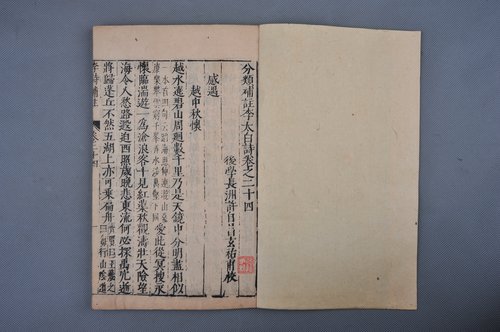 分類補註李太白詩卷之二十四
後學長洲許自昌玄祐甫校
感遇
越中秋懷
越水遶碧山周迴數千里乃是天鏡中分明畫相似
愛此從冥搜永
懷臨湍遊一為滄浪客十見紅蕖秋觀濤壯天險望
海令人愁路遐迫西照歲晚悲東流何必探禹穴逝
將歸蓬丘不然五湖上亦可乘扁舟
李詩補註
卷之二十四